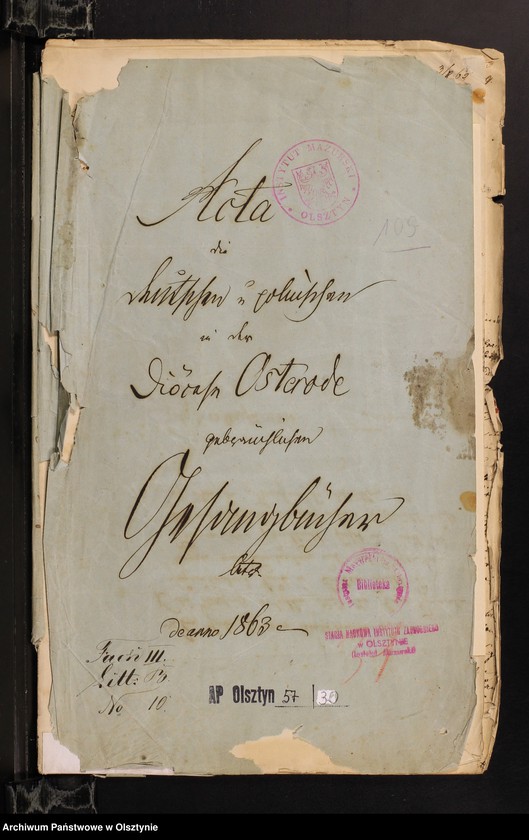 Acta
die
deutschen u polnischen
in der
Diöcese Osterode
gebräuchlichen
Gesangbücher
betr
de anno 1863
INSTYTUT MAZURSKI
OLSZTYN
109
Biblioteka
STACJA NAUKOWA INSTYTUTU ZACHODNIEGO
w OLSZTYNIE
(Instytut Mazurski)
Fach III.
Litt. B.
No 10.
AP Olsztyn 57 | 39
Archiwum Państwowe w Olsztynie